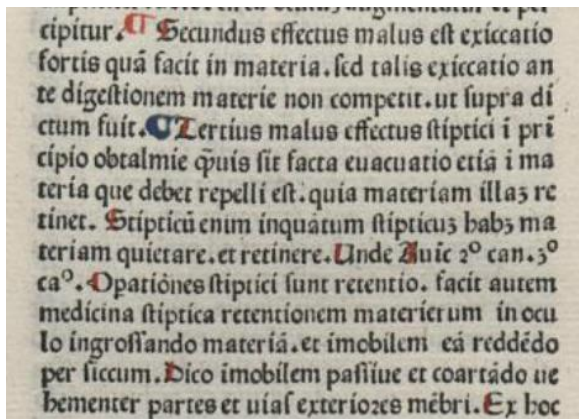 cipitur. ¶ Secundus effectus malus est exiccatio
fortis quā facit in materia. sed talis exiccatio an
te digestionem materie non competit. ut supra di
ctum fuit. ¶ Tertius malus effectus stiptici i pri
cipio obtalmie q̄uis sit facta euacuatio etiā i ma
teria que debet repelli est. quia materiam illaꝫ re
tinet. Stipticū enim inquātum stipticuꝫ habꝫ ma
teriam quietare. et retinere. Unde Auic 2º can. 3º
caº. Opatiōnes stiptici sunt retentio. facit autem
medicina stiptica retentionem materierum in ocu
lo ingrossando materiā. et imobilem eā reddēdo
per siccum. Dico imobilem passiue et coartādo ue
hementer partes et uias exteriores mēbri. Ex hoc